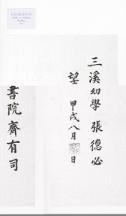 三溪幼學 張德必
望 甲戌八月 日
書院齋有司